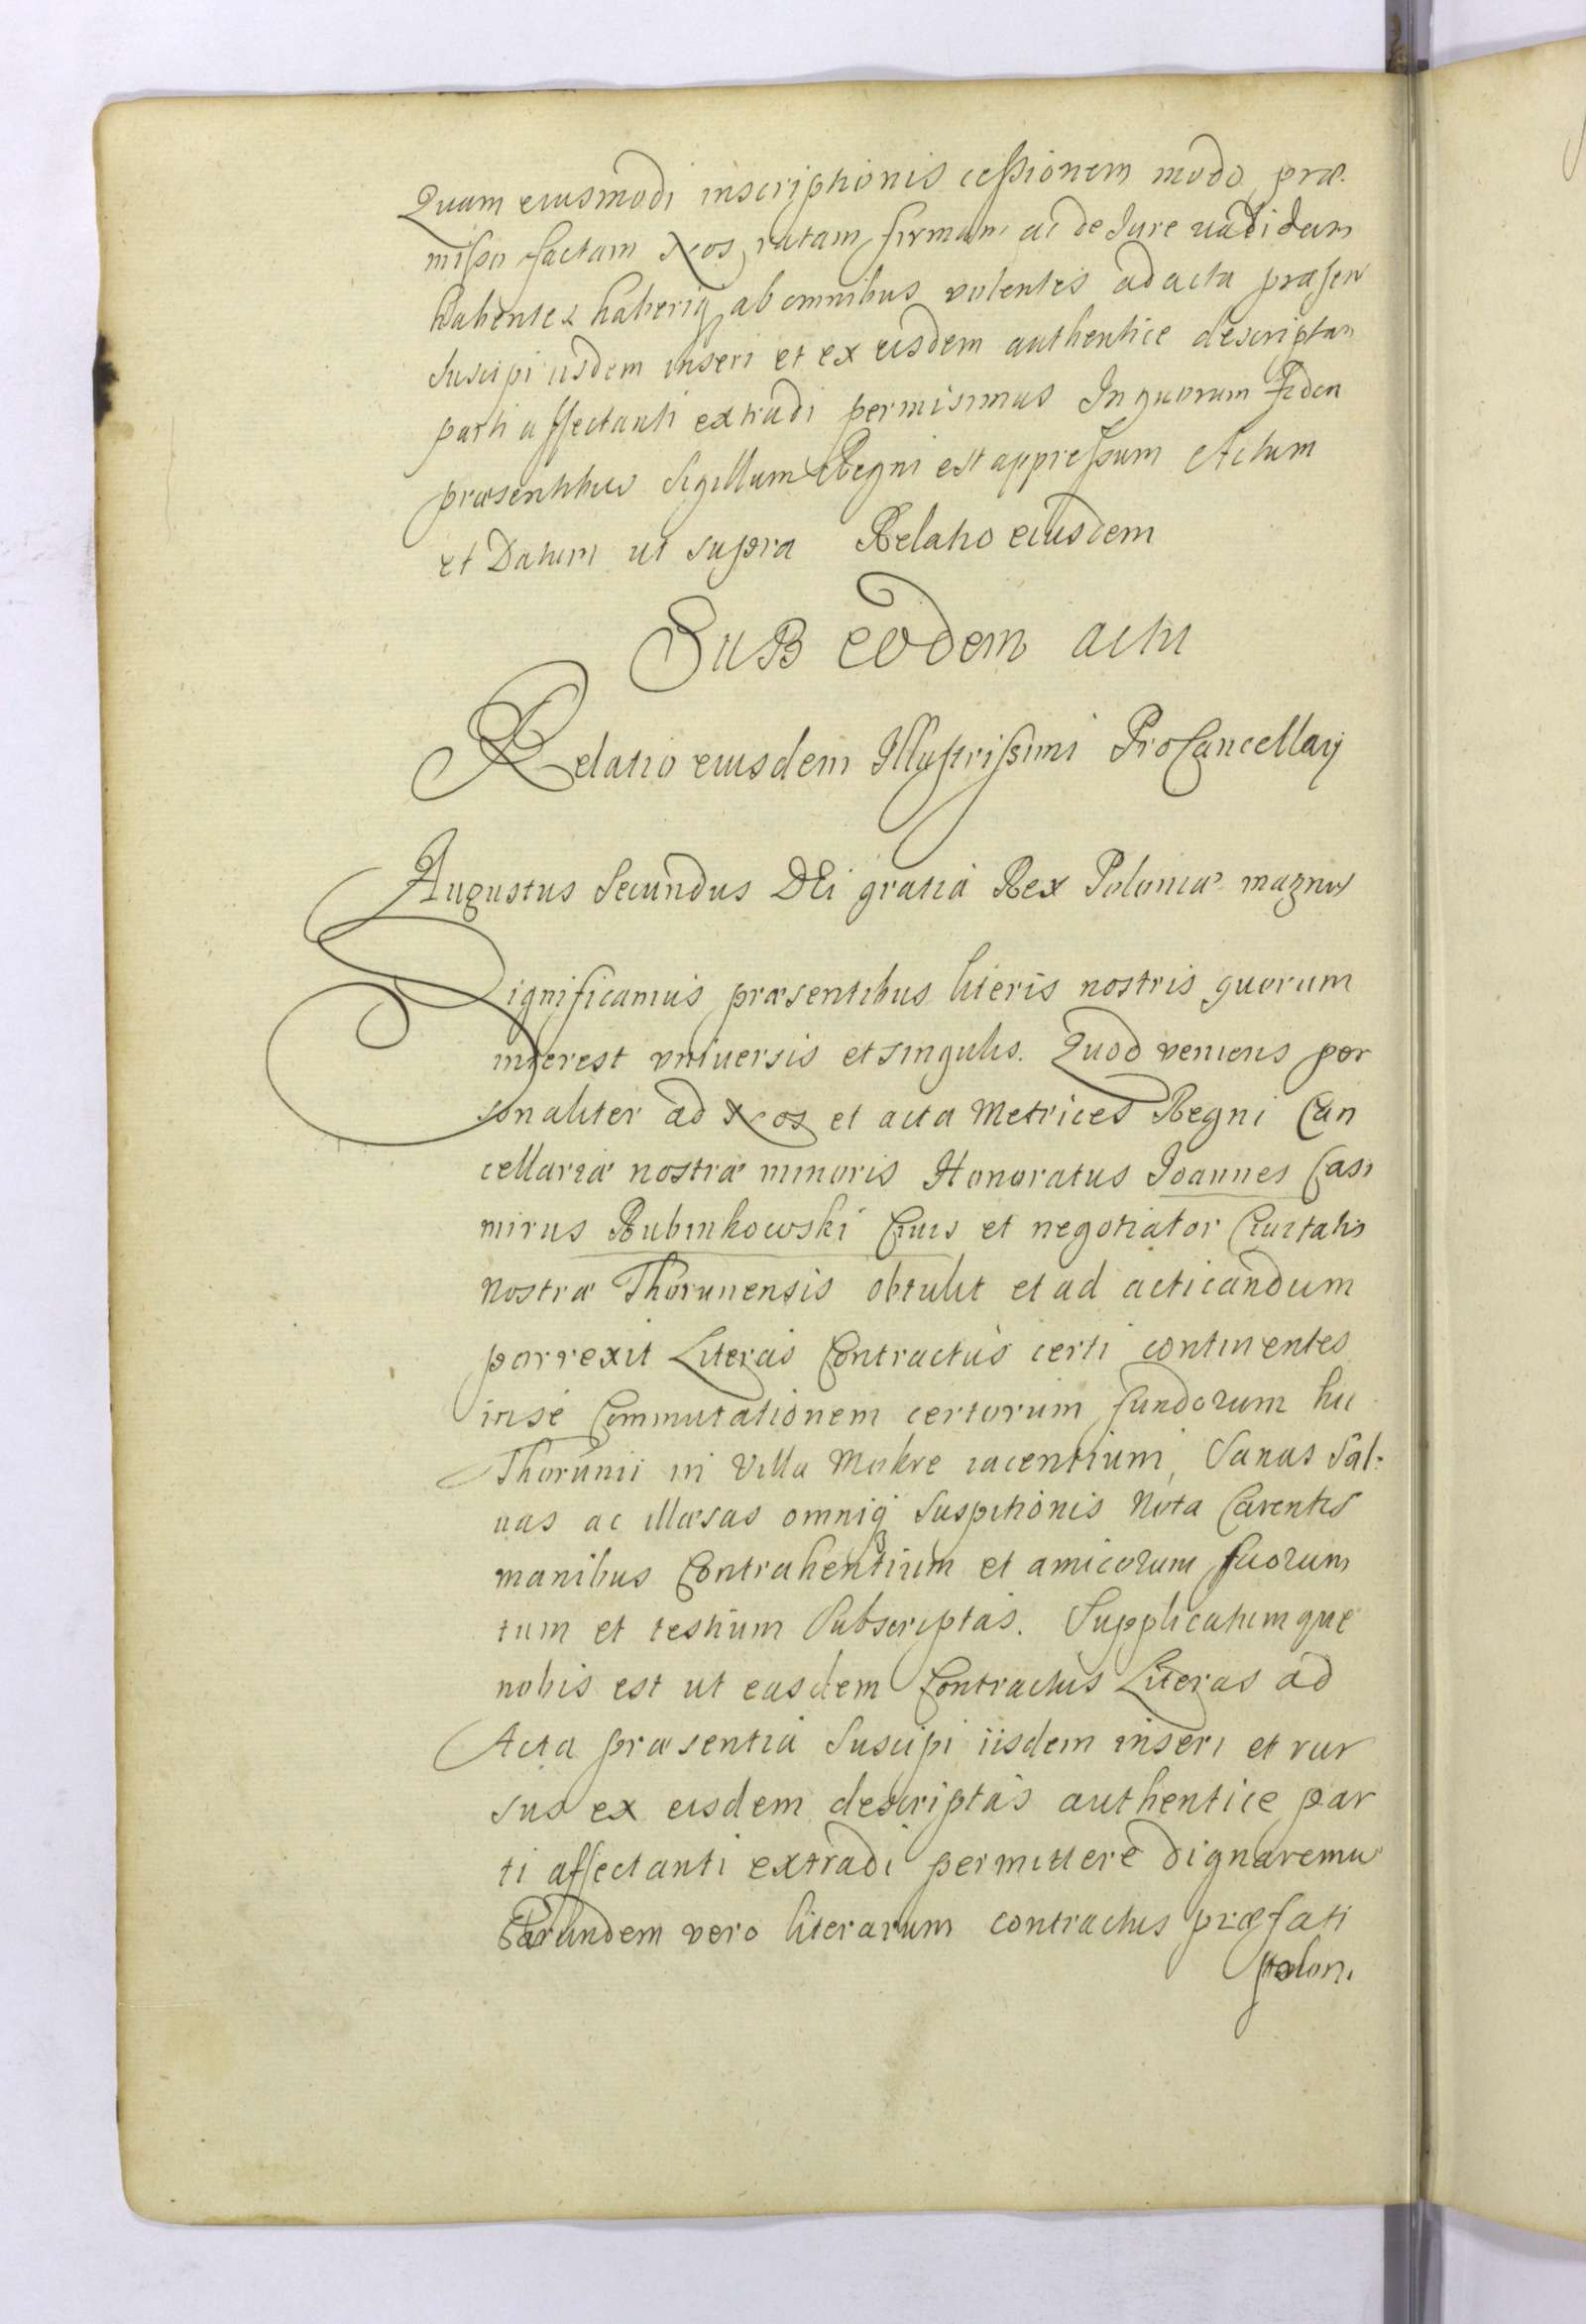 Quam eiusmodi inscriptionis cessionem modo præ-
misso factam Nos ratam, firmam ac de Jure ualidam
habentes haberiq ab omnibus volentes ad acta præsen
suscipi iisdem inseri et ex eisdem authentice descriptam
parti affectanti extradi permisimus In quorum Fidem
præsentibus Sigillum Regni est appressum Actum
et Datum ut supra Relatio eiusdem
Sub eodem actu
Relatio eiusdem Illustrissimi ProCancellarij
Augustus Secundus DEi gratiâ Rex Poloniæ magnus
Significamus præsentibus literis nostris quorum
interest vniuersis et singulis. Quod veniens per
sonaliter ad Nos et acta Metrices Regni Can
cellariæ nostræ minoris Honoratus Joannes Casi
mirus Rubinkowski Ciuis et negotiator Ciuitatis
Nostræ Thorunensis obtulit et ad acticandum
porrexit Literas Contractûs certi continentes
in sé Commutationem certorum fundorum hic
Thorunii in Villa Mokre iacentium, Sanas Sal-
uas ac illæsas omniq Suspitionis Nota Carentes
manibus Contrahentium et amicorum suorum
tum et testium Subscriptas. Supplicatumque
nobis est ut easdem Contractûs Literas ad
Acta præsentia Suscipi iisdem inseri et rur
sus ex eisdem descriptas authentice par
ti affectanti extradi permittere dignaremur
Earundem vero literarum contractus præfati